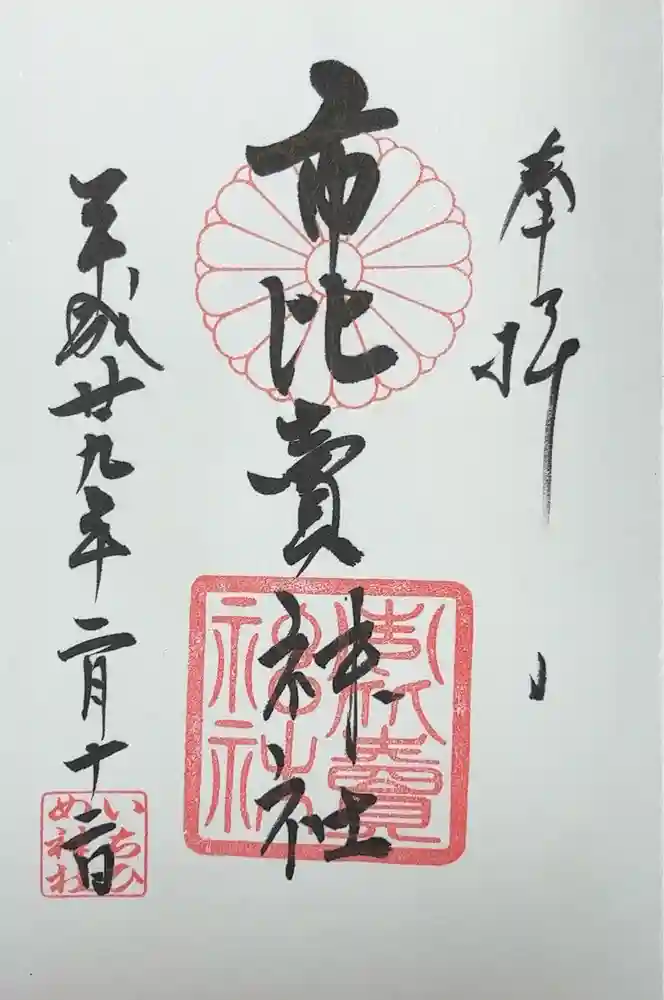 奉拝
市比賣神社
平成廿九年二月十二日
いちひ
め神社